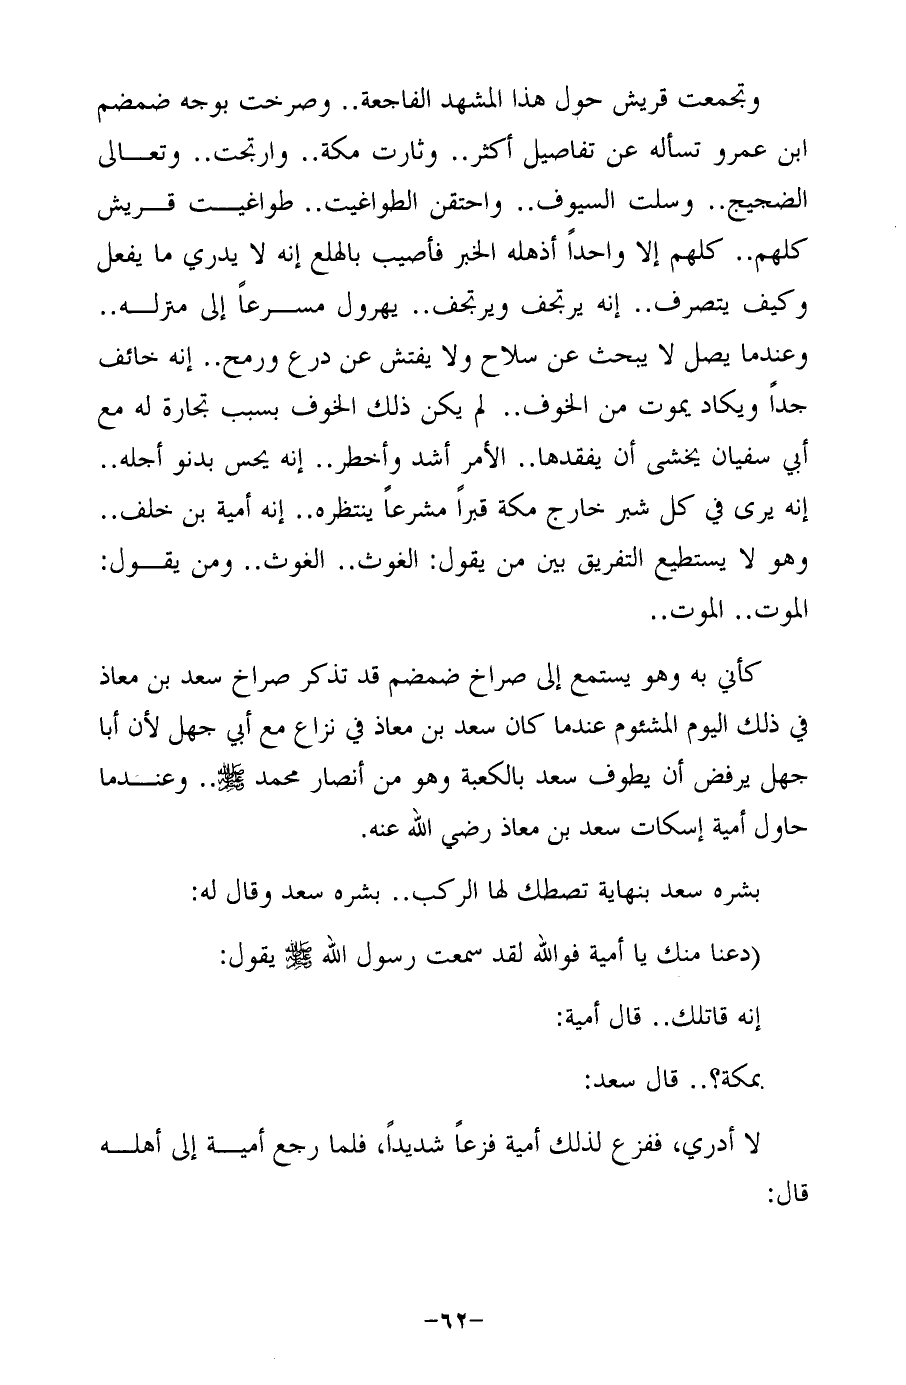 وتجمعت قريش حول هذا المشهد الفاجعة.. وصرخت بوجه ضمضم
ابن عمرو تسأله عن تفاصيل أكثر.. وثارت مكة.. وارتجت.. وتعـــالى
الضجيج.. وسلت السيوف.. واحتقن الطواغيت.. طواغيـــت قـــريش
كلهم.. كلهم إلا واحداً أذهله الخبر فأصيب بالهلع إنه لا يدري ما يفعل
وكيف يتصرف.. إنه يرتجف ويرتجف.. يهرول مســـرعاً إلى منزلـــه..
وعندما يصل لا يبحث عن سلاح ولا يفتش عن درع ورمح.. إنه خائف
جداً ويكاد يموت من الخوف.. لم يكن ذلك الخوف بسبب تجارة له مع
أبي سفيان يخشى أن يفقدها.. الأمر أشد وأخطر.. إنه يحس بدنو أجله..
إنه يرى في كل شبر خارج مكة قبراً مشرعاً ينتظره.. إنه أمية بن خلف..
وهو لا يستطيع التفريق بين من يقول: الغوث.. الغوث.. ومن يقـــول:
الموت.. الموت..
كأني به وهو يستمع إلى صراخ ضمضم قد تذكر صراخ سعد بن معاذ
في ذلك اليوم المشئوم عندما كان سعد بن معاذ في نزاع مع أبي جهل لأن أبا
جهل يرفض أن يطوف سعد بالكعبة وهو من أنصار محمد ﷺ.. وعنـــدما
حاول أمية إسكات سعد بن معاذ رضي الله عنه.
بشره سعد بنهاية تصطك لها الركب.. بشره سعد وقال له:
(دعنا منك يا أمية فوالله لقد سمعت رسول الله ﷺ يقول:
إنه قاتلك.. قال أمية:
بمكة؟.. قال سعد:
لا أدري، ففزع لذلك أمية فزعاً شديداً، فلما رجع أميـــة إلى أهلـــه
قال:
-٦٢-